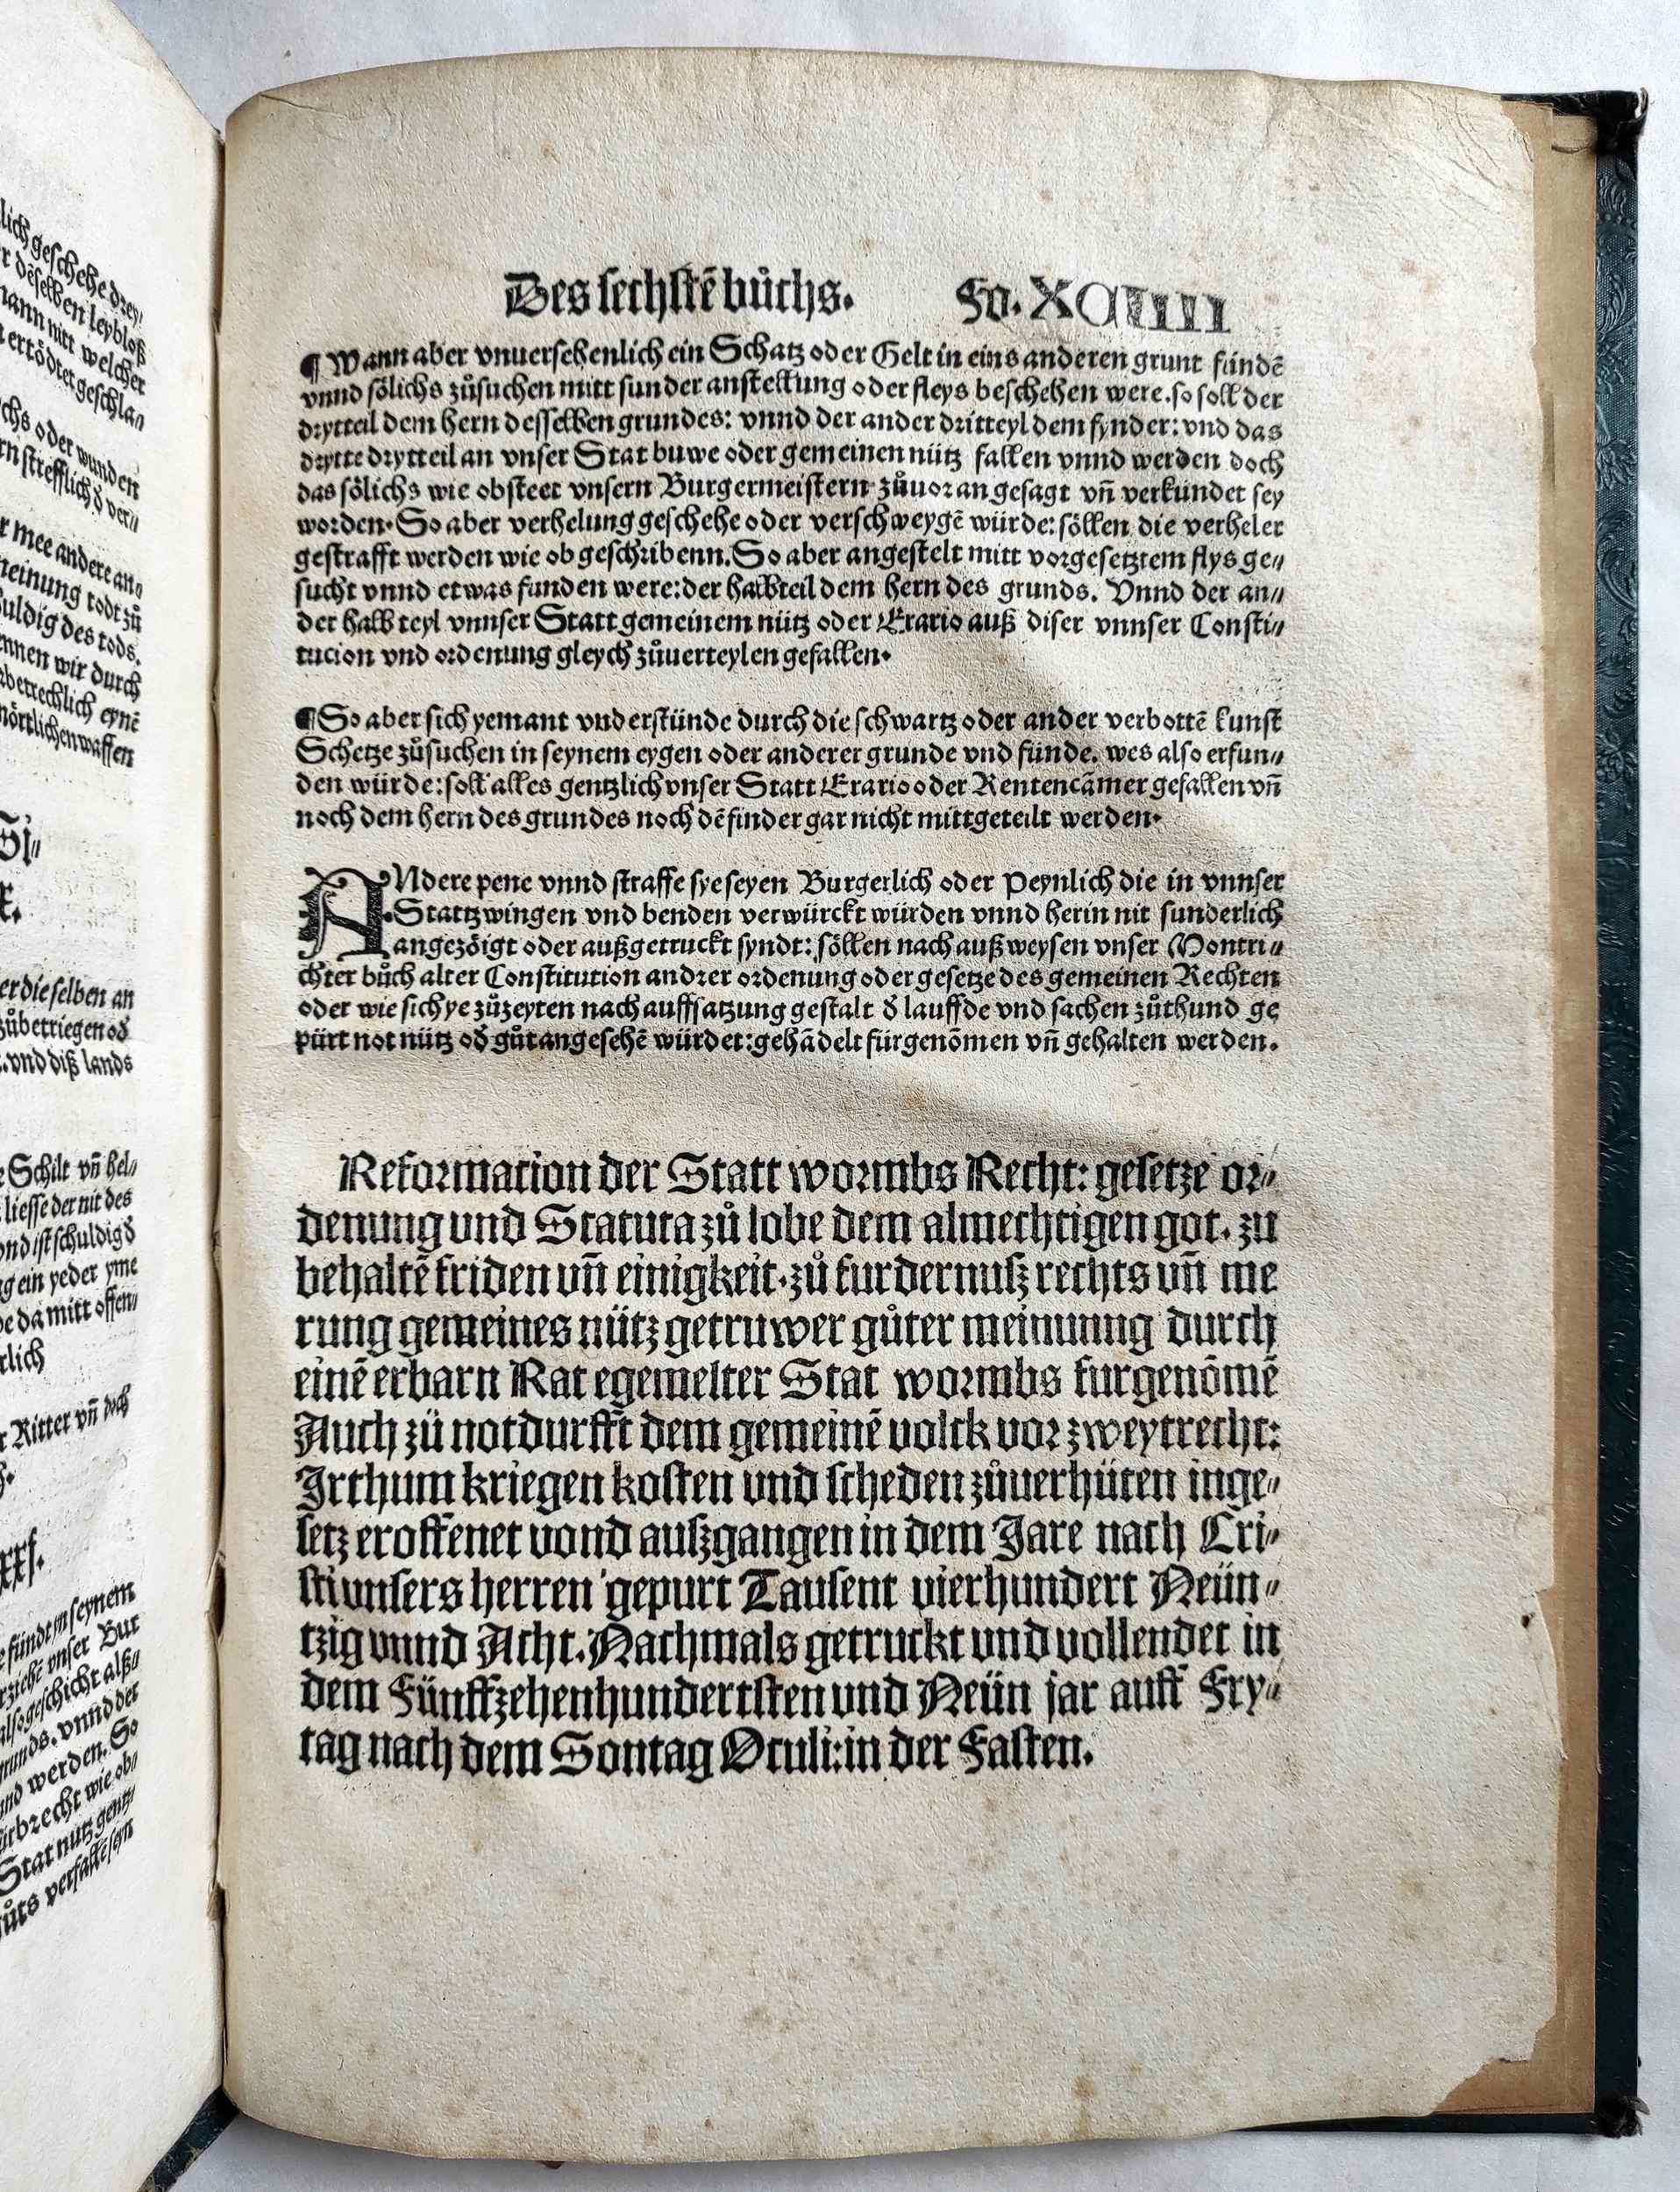 lich geschehe drey
r dēselben leybloß
mann nitt welcher
ertödtet geschlan
chs oder wunden
rn strefflich d̄ ver⸗
r mee andere an⸗
meinung todt zů
uldig des tods.
nnen wir durch
rbetrechlich eynē
mörtlichen waffen
er dieselben an
zůbetriegen od̄
. vnd diß lands
e Schilt vn̄ hel⸗
liesse der nit des
ond ist schuldig d̄
g ein yeder yme
e da mitt offen⸗
rlich
r Ritter vn̄ doch
xxj.
e fündt in seynem
rziehē vnser Bur
also geschicht alß⸗
grunds. vnnd der
und werden. So
ürbrecht wie ob⸗
Stat nutz gentz⸗
gůts verfalle seyn
Des sechstē bůchs. Fo. XCIIII
¶ Wann aber vnuersehenlich ein Schatz oder Gelt in eins anderen grunt fundē
vnnd sölichs zůsuchen mitt sunder anstellung oder fleys beschehen were. so soll der
drytteil dem hern desselben grundes: vnnd der ander dritteyl dem fynder: vnd das
drytte drytteil an vnser Stat buwe oder gemeinen nütz fallen vnnd werden doch
das sölichs wie obsteet vnsern Burgermeistern zůuor angesagt vn̄ verkundet sey
worden. So aber verhelung geschehe oder verschweygē würde: söllen die verheler
gestrafft werden wie ob geschribenn. So aber angestelt mitt vorgesetztem flys ge⸗
sucht vnnd etwas funden were: der halbteil dem hern des grunds. Vnnd der an⸗
der halb teyl vnnser Statt gemeinem nütz oder Erario auß diser vnnser Consti⸗
tucion vnd ordenung gleych zůuerteylen gefallen.
¶ So aber sich yemant vnderstünde durch die schwartz oder ander verbottē kunst
Schetze zůsuchen in seynem eygen oder anderer grunde vnd fünde. wes also erfun⸗
den würde: soll alles gentzlich vnser Statt Erario oder Rentencāmer gefallen vn̄
noch dem hern des grundes noch dē finder gar nicht mittgeteilt werden.
ANdere pene vnnd straffe sye seyen Burgerlich oder Peynlich die in vnnser
Statt zwingen vnd benden verwürckt würden vnnd herin nit sunderlich
angezöigt oder außgetruckt syndt: söllen nach außweysen vnser Montri⸗
chter bůch alter Constitution andrer ordenung oder gesetze des gemeinen Rechten
oder wie sich ye zůzeyten nach auffsatzung gestalt d̄ lauffde vnd sachen zůthund ge
pürt not nütz od̄ gůt angesehē würdet: gehādelt fürgenōmen vn̄ gehalten werden.
Reformacion der Statt wormbs Recht: gesetze or⸗
denung vnd Statuta zů lobe dem almechtigen got. zu
behaltē friden vn̄ einigkeit. zů furdernusz rechts vn̄ me
rung gemeines nütz getruwer gůter meinunng durch
einē erbarn Rat egemelter Stat wormbs furgenōmē
Auch zü notdurfft dem gemeinē volck vor zweytrecht:
Jrthum kriegen kosten vnd scheden zůuerhüten inge⸗
setz eroffenet vond auszgangen in dem Jare nach Cri⸗
sti vnsers herren gepurt Tausent vierhundert Neün⸗
tzig vnnd Acht. Nachmals getruckt vnd vollendet in
dem Fünffzehenhundertsten vnd Neün jar auff Fry⸗
tag nach dem Sontag Oculi: in der Fasten.